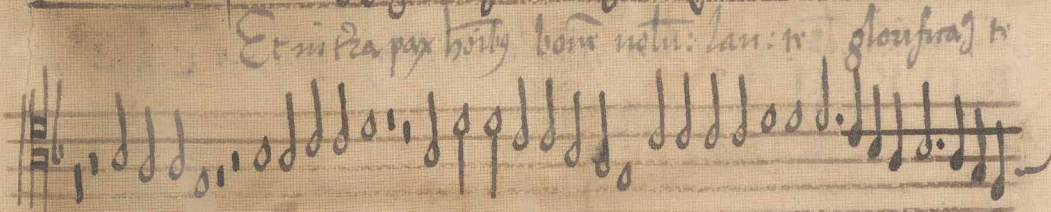 Et in tr̃a pax hoĩbꝫ bone volũ: lau: te glorificaꝫ te